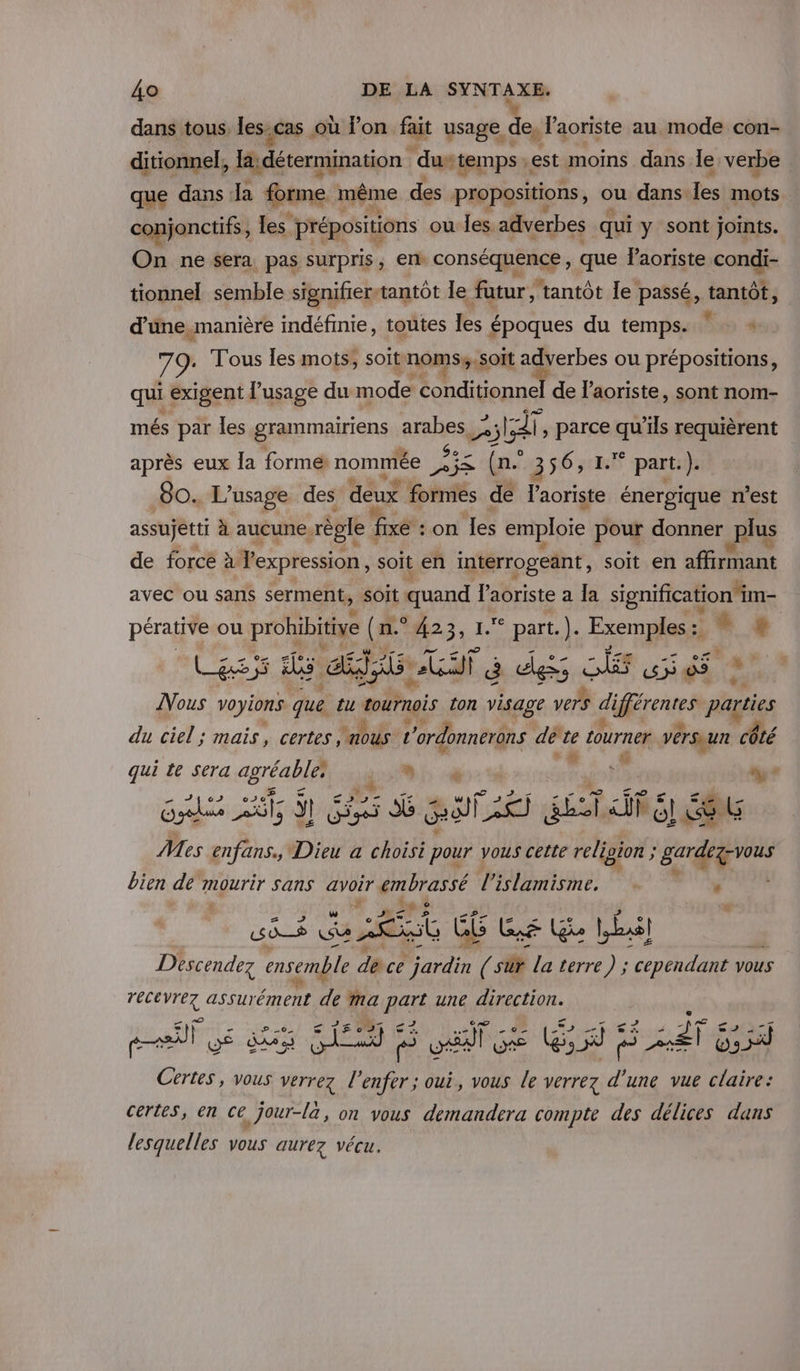 40 DE LA SYNTAXE.
dans tous les cas où l'on fait usage de l'aoriste au mode con-
ditionnel, la détermination du temps est moins dans le verbe
que dans la forme même des propositions, ou dans les mots
conjonctifs, les prépositions ou les adverbes qui y sont joints.
On ne sera pas surpris, en conséquence, que l'aoriste condi-
tionnel semble signifier tantôt le futur, tantôt le passé, tantôt,
d'une manière indéfinie, toutes les époques du temps.
79. Tous les mots, soit noms, soit adverbes ou prépositions,
qui exigent l'usage du mode conditionnel de l'aoriste, sont nom-
més par les grammairiens arabes اَلْجَوَازِمُ, parce qu'ils requièrent
après eux la forme nommée جَزْمٌ (n.° 356, 1.re part.).
80. L'usage des deux formes de l'aoriste énergique n'est
assujetti à aucune règle fixe : on les emploie pour donner plus
de force à l'expression, soit en interrogeant, soit en affirmant
avec ou sans serment, soit quand l'aoriste a la signification im-
pérative ou prohibitive (n.° 423, 1.re part.). Exemples :
قَدْ نَرَى تَقَلُّبَ وَجْهِكَ فِي ٱلسَّمَاءِ فَلَنُوَلِّيَنَّكَ قِبْلَةً تَرْضَيهَا
Nous voyions que tu tournois ton visage vers différentes parties
du ciel ; mais, certes, nous t'ordonnerons de te tourner vers un côté
qui te sera agréable.
يَا بَنِيَّ إِنَّ ٱللّٰهَ ٱصْطَفَى لَكُمُ ٱلدِّينَ فَلَا تَمُوتُنَّ إِلَّا وَأَنْتُمْ مُسْلِمُونَ
Mes enfans, Dieu a choisi pour vous cette religion ; gardez-vous
bien de mourir sans avoir embrassé l'islamisme.
اِهْبِطُوا مِنْهَا جَمِيعًا فَإِمَّا يَأْتِيَنَّكُمْ مِنِّي هُدًى
Descendez ensemble de ce jardin (sur la terre) ; cependant vous
recevrez assurément de ma part une direction.
لَتَرَوُنَّ ٱلْجَحِيمَ ثُمَّ لَتَرَوُنَّهَا عَيْنَ ٱلْيَقِينِ ثُمَّ لَتُسْئَلُنَّ يَوْمَئِذٍ عَنِ ٱلنَّعِيمِ
Certes, vous verrez l'enfer ; oui, vous le verrez d'une vue claire :
certes, en ce jour-là, on vous demandera compte des délices dans
lesquelles vous aurez vécu.